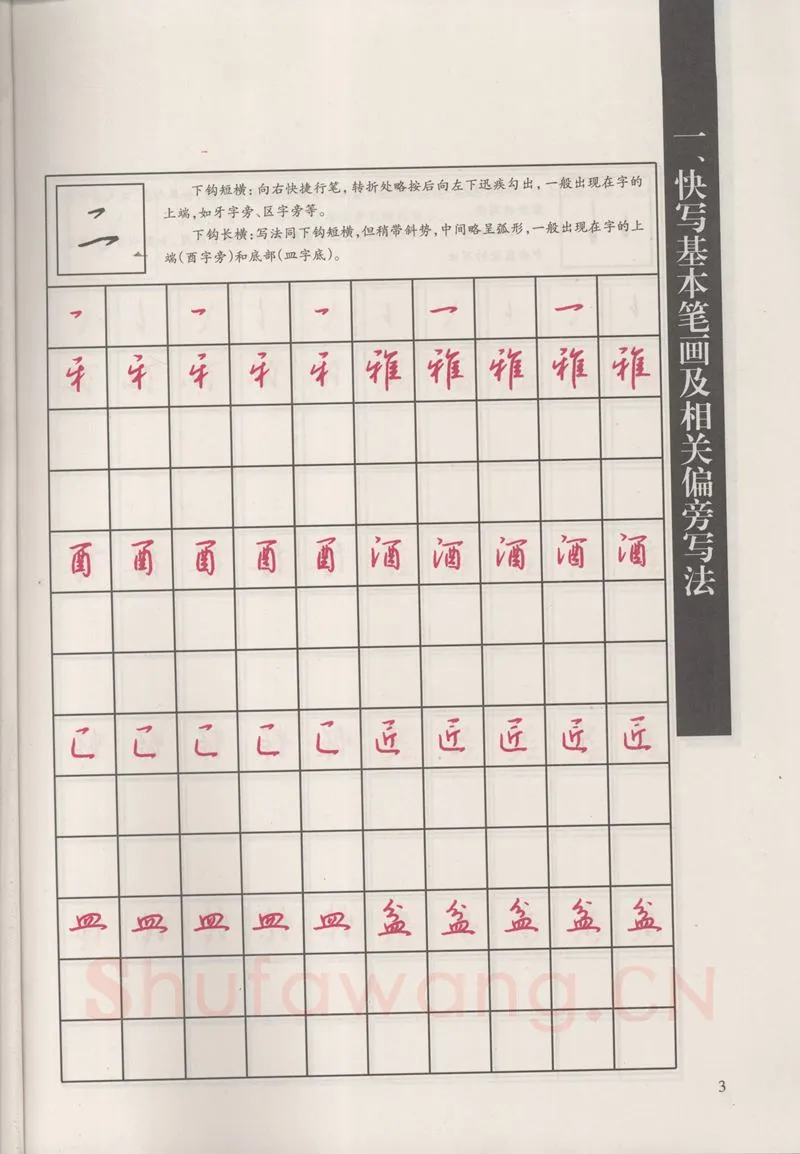 一、快写基本笔画及相关偏旁写法
下钩短横：向右快捷行笔，转折处略按后向左下迅疾勾出，一般出现在字的
上端，如牙字旁、区字旁等。
下钩长横：写法同下钩短横，但稍带斜势，中间略呈弧形，一般出现在字的上
端(酉字旁)和底部(皿字底)。
牙 牙 牙 牙 牙 雅 雅 雅 雅 雅
酉 酉 酉 酉 酉 酒 酒 酒 酒 酒
匚 匚 匚 匚 匚 匠 匠 匠 匠 匠
皿 皿 皿 皿 皿 盆 盆 盆 盆 盆
Shufawang.CN
3